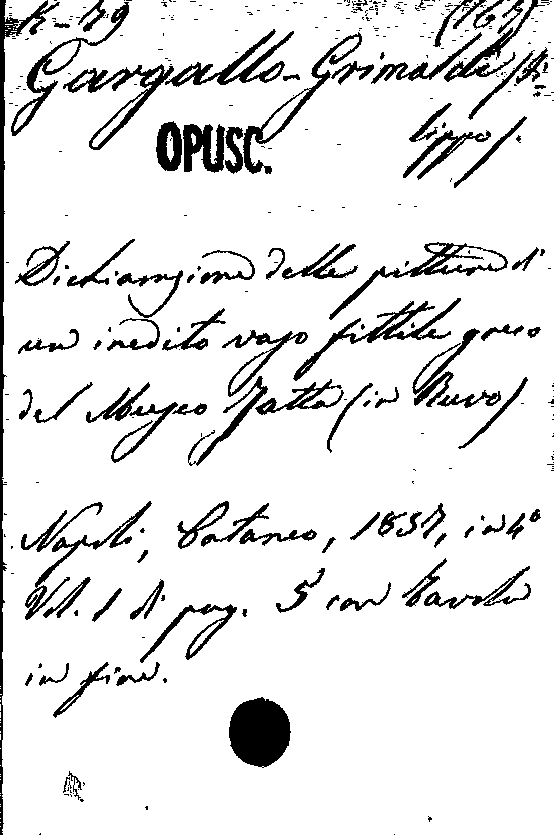 K-79 (163)
Gargallo-Grimaldi (Fi=
lippo).
OPUSC.
Dichiarazione delle pitture di
un inedito vaso fittile greco
del Museo Jatta (in Ruvo)
Napoli, Cataneo, 1857, in 4º
Vol. 1 di pag. 5 con Tavola
in fine.